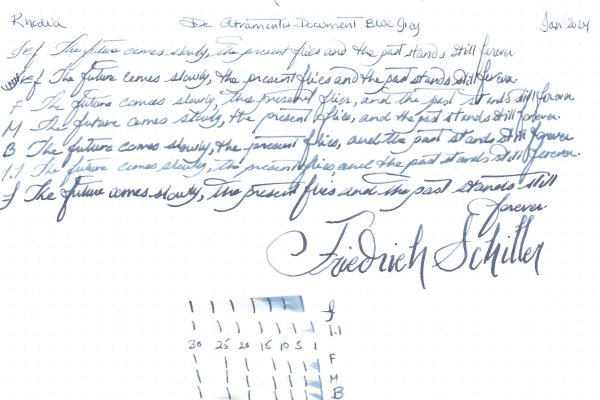 Rhodia De Atramentis Document Blue Grey Jan 2024
EF The future comes slowly, the present flies and the past stands still forever.
EF The future comes slowly, the present flies and the past stands still forever.
F The future comes slowly, the present flies, and the past stands still forever.
M The future comes slowly, the present flies, and the past stands still forever.
B The future comes slowly, the present flies, and the past stands still forever.
1.1 The future comes slowly, the present flies, and the past stands still forever.
f The future comes slowly, the present flies and the past stands still
forever.
Friedrich Schiller
f
1.1
30 25 20 15 10 5 1
F
M
B